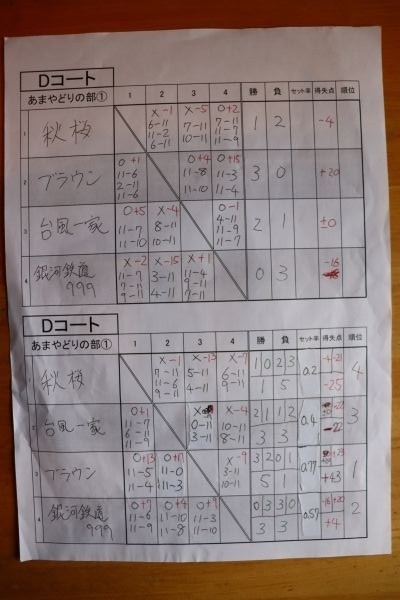 Dコート
あまやどりの部① 1 2 3 4 勝 負 セット率 得失点 順位
1 秋桜 X-1 X-5 O+2 1 2 -4
6-11 7-11 7-11
11-2 10-11 11-7
6-11 11-9
2 ブラウン O+1 O+4 O+15 3 0 +20
11-6 11-8 11-3
2-11 11-10 11-4
11-6
3 台風一家 O+5 X-4 O-1 2 1 ±0
11-7 8-11 4-11
11-10 10-11 11-9
11-7
4 銀河鉄道 X-2 X-15 X+1 0 3 -16
999 11-7 3-11 11-4
7-11 4-11 9-11
9-11 7-11
Dコート
あまやどりの部① 1 2 3 4 勝 負 セット率 得失点 順位
1 秋桜 X-1 X-13 X-7 1 0 2 3 0.2 -4 -21 4
7-11 5-11 6-11
11-6 4-11 9-11
9-11 1 5 -25
2 台風一家 O+1 X X-4 2 1 1 2 0.4 -22 3
11-7 0-11 10-11
6-11 3-11 8-11 3 3 -22
11-9
3 ブラウン O+13 O+17 X-9 3 2 0 1 0.77 1
11-5 11-0 3-11
11-4 11-3 10-11 5 1 +43
4 銀河鉄道 O+7 O+4 O+9 0 3 3 0 0.57 -16 +20 2
999 11-6 11-10 11-3
11-9 11-8 11-10 3 3 +4